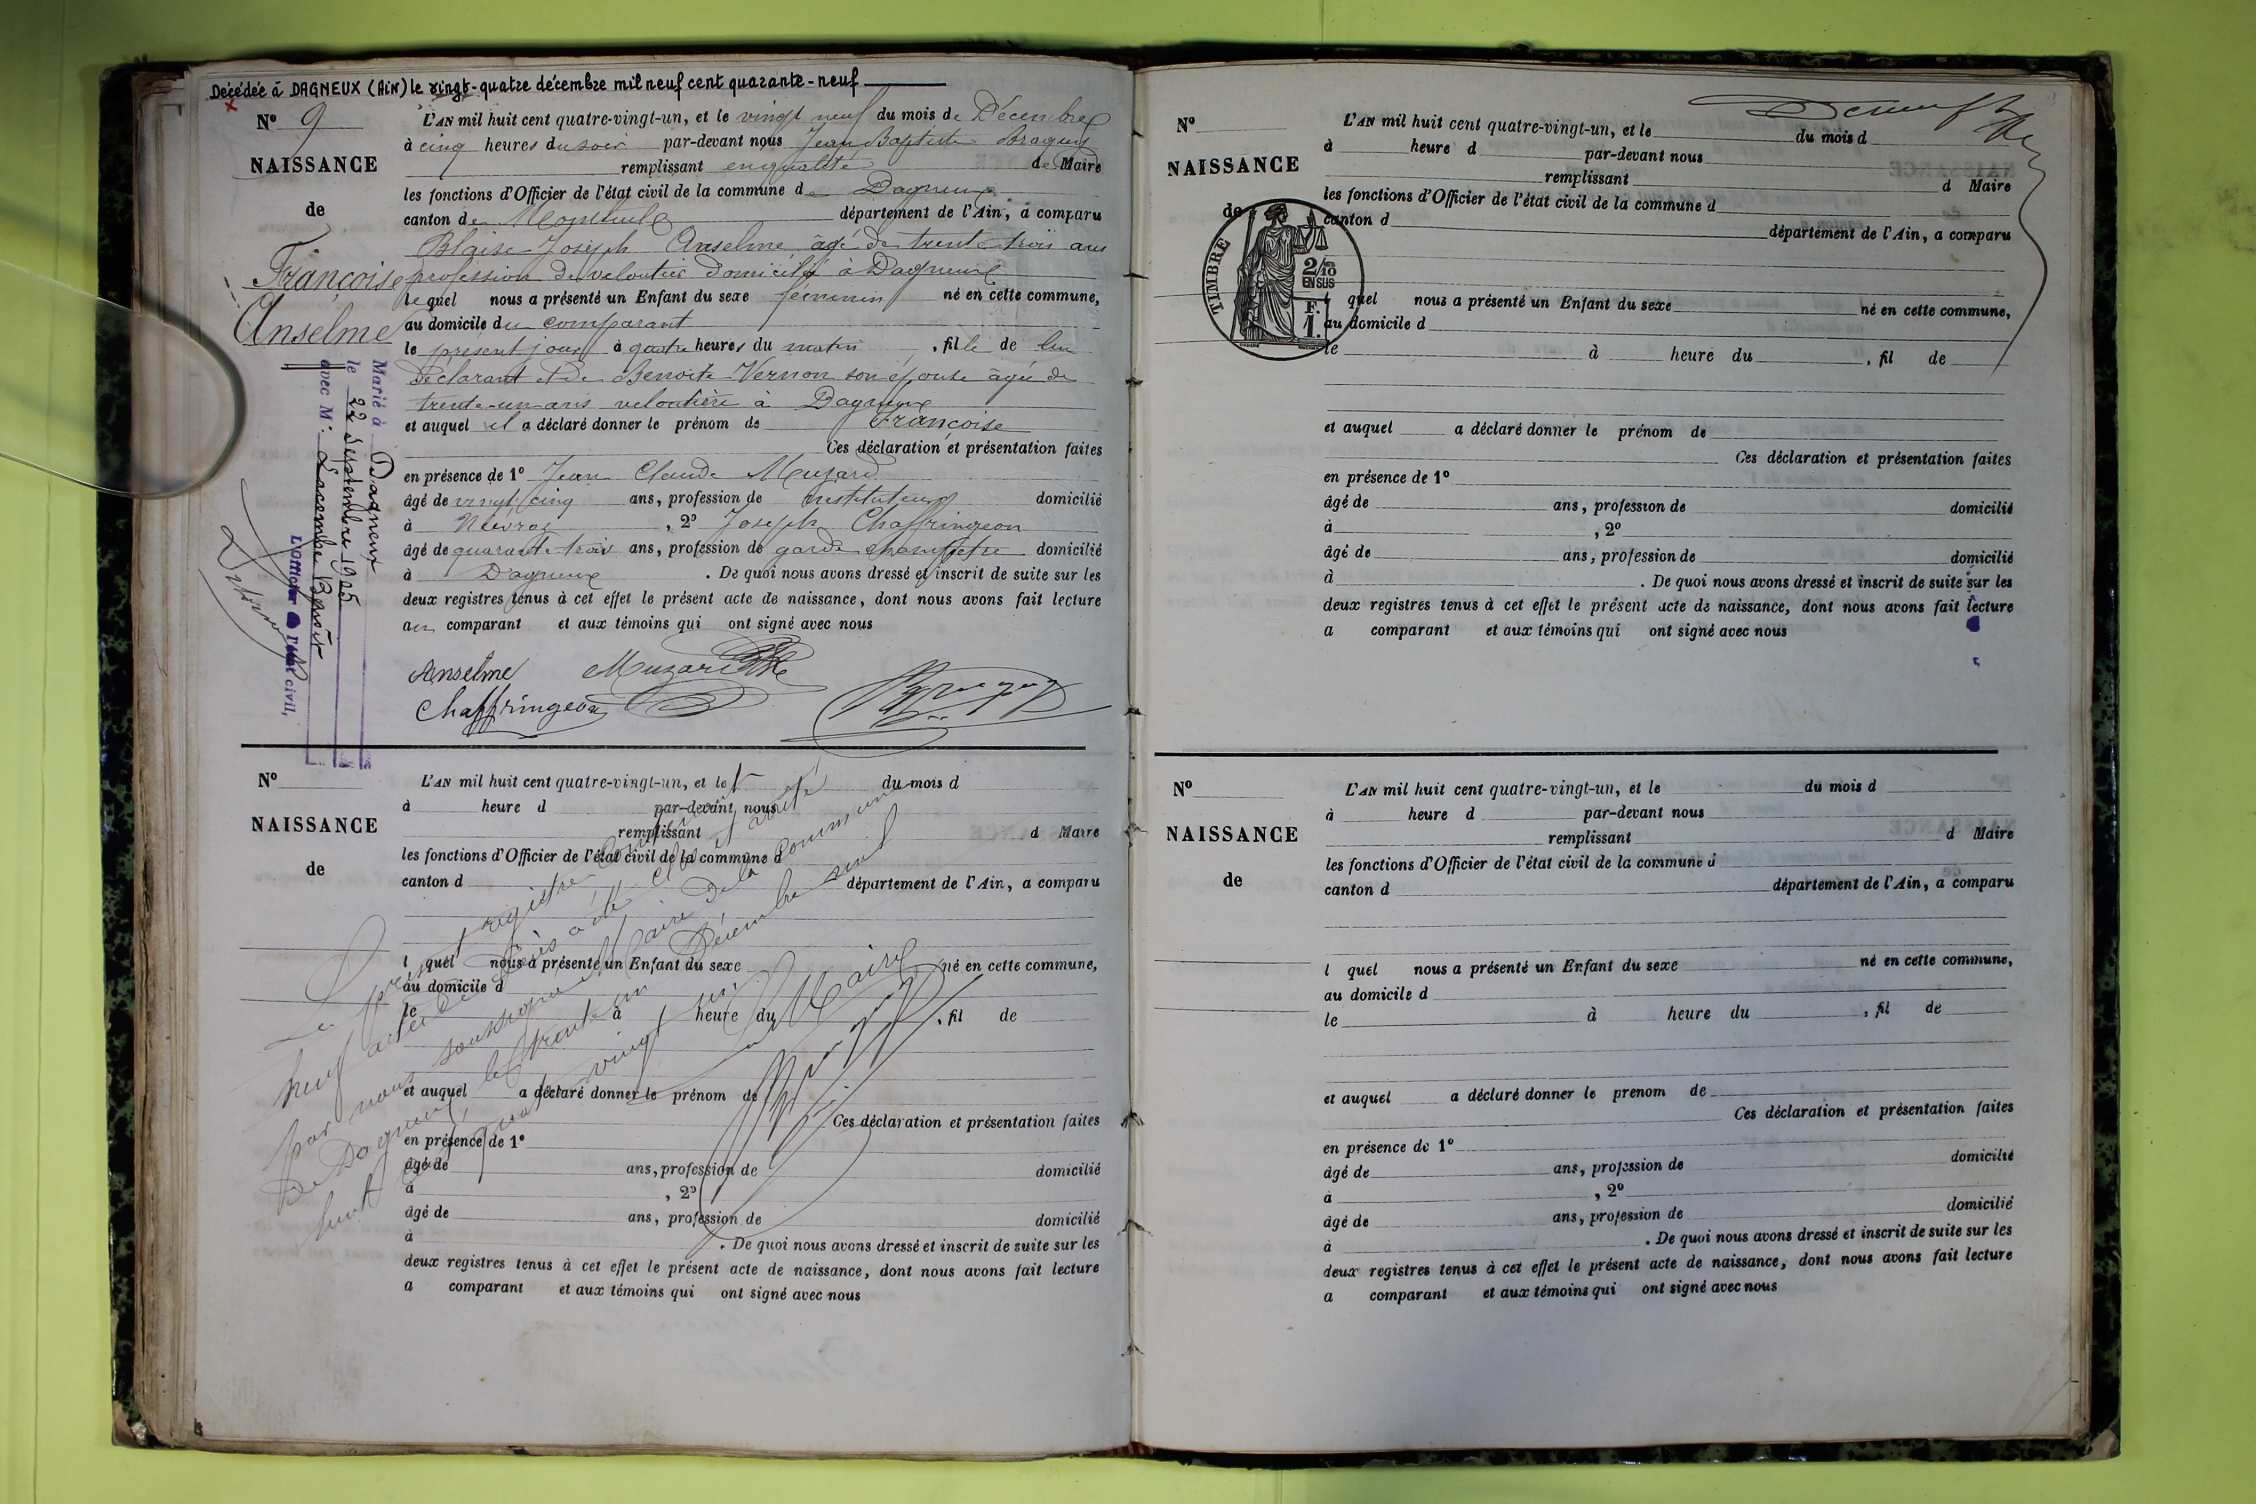 Décédée à DAGNEUX (Ain) le vingt-quatre décembre mil neuf cent quarante-neuf
N° 9
NAISSANCE
de
Françoise
Anselme
Marié à Dagneux
le 22 Septembre 1905
avec M. Lacombe Benoît
L'Officier de l'état civil,
L'AN mil huit cent quatre-vingt-un, et le vingt neuf du mois de Décembre
à cinq heures du soir par-devant nous Jean Baptiste
remplissant en qualité de Maire
les fonctions d'Officier de l'état civil de la commune de Dagneux
canton de Montluel département de l'Ain, a comparu
Blaise Joseph Anselme âgé de trente trois ans
profession de veloutier domicilié à Dagneux
lequel nous a présenté un Enfant du sexe féminin né en cette commune,
au domicile du comparant
le présent jour à quatre heures du matin, fille de lui
déclarant et de Benoite Vernon son épouse âgée de
trente-un ans veloutière à Dagneux
et auquel il a déclaré donner le prénom de Françoise
Ces déclaration et présentation faites
en présence de 1° Jean Claude Muzard
âgé de vingt cinq ans, profession de instituteur domicilié
à , 2° Joseph Chaffringeon
âgé de quarante trois ans, profession de garde champêtre domicilié
à Dagneux. De quoi nous avons dressé et inscrit de suite sur les
deux registres tenus à cet effet le présent acte de naissance, dont nous avons fait lecture
au comparant et aux témoins qui ont signé avec nous
Anselme Muzard
Chaffringeon
N°
NAISSANCE
de
L'AN mil huit cent quatre-vingt-un, et le du mois d
à heure d par-devant nous
remplissant d Maire
les fonctions d'Officier de l'état civil de la commune d
canton d département de l'Ain, a comparu
l quel nous a présenté un Enfant du sexe né en cette commune,
au domicile d
le à heure du , fil de
et auquel a déclaré donner le prénom de
Ces déclaration et présentation faites
en présence de 1°
âgé de ans, profession de domicilié
à , 2°
âgé de ans, profession de domicilié
à . De quoi nous avons dressé et inscrit de suite sur les
deux registres tenus à cet effet le présent acte de naissance, dont nous avons fait lecture
a comparant et aux témoins qui ont signé avec nous
Le présent registre contenant
neuf actes de naissances a été clos et arrêté
par nous soussigné Maire de la commune
de Dagneux, le trente un Décembre mil
huit cent quatre vingt un.
Le Maire
N°
NAISSANCE
de
TIMBRE
2/10
EN SUS
F.
1.
L'AN mil huit cent quatre-vingt-un, et le du mois d
à heure d par-devant nous
remplissant d Maire
les fonctions d'Officier de l'état civil de la commune d
canton d département de l'Ain, a comparu
l quel nous a présenté un Enfant du sexe né en cette commune,
au domicile d
le à heure du , fil de
et auquel a déclaré donner le prénom de
Ces déclaration et présentation faites
en présence de 1°
âgé de ans, profession de domicilié
à , 2°
âgé de ans, profession de domicilié
à . De quoi nous avons dressé et inscrit de suite sur les
deux registres tenus à cet effet le présent acte de naissance, dont nous avons fait lecture
a comparant et aux témoins qui ont signé avec nous
N°
NAISSANCE
de
L'AN mil huit cent quatre-vingt-un, et le du mois d
à heure d par-devant nous
remplissant d Maire
les fonctions d'Officier de l'état civil de la commune d
canton d département de l'Ain, a comparu
l quel nous a présenté un Enfant du sexe né en cette commune,
au domicile d
le à heure du , fil de
et auquel a déclaré donner le prenom de
Ces déclaration et présentation faites
en présence de 1°
âgé de ans, profession de domicilié
à , 2°
âgé de ans, profession de domicilié
à . De quoi nous avons dressé et inscrit de suite sur les
deux registres tenus à cet effet le présent acte de naissance, dont nous avons fait lecture
a comparant et aux témoins qui ont signé avec nous